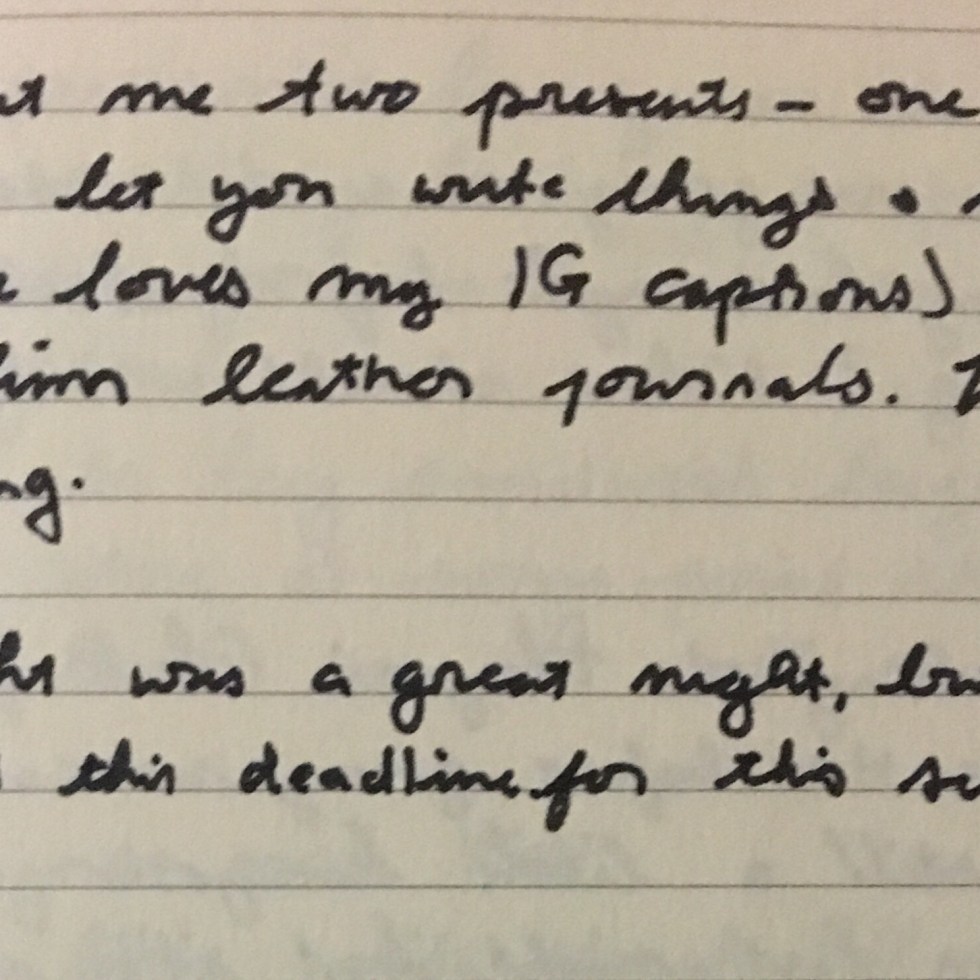 me two presents - one
let you write things •
loves my IG captions)
leather journals.
was a great night,
this deadline for this